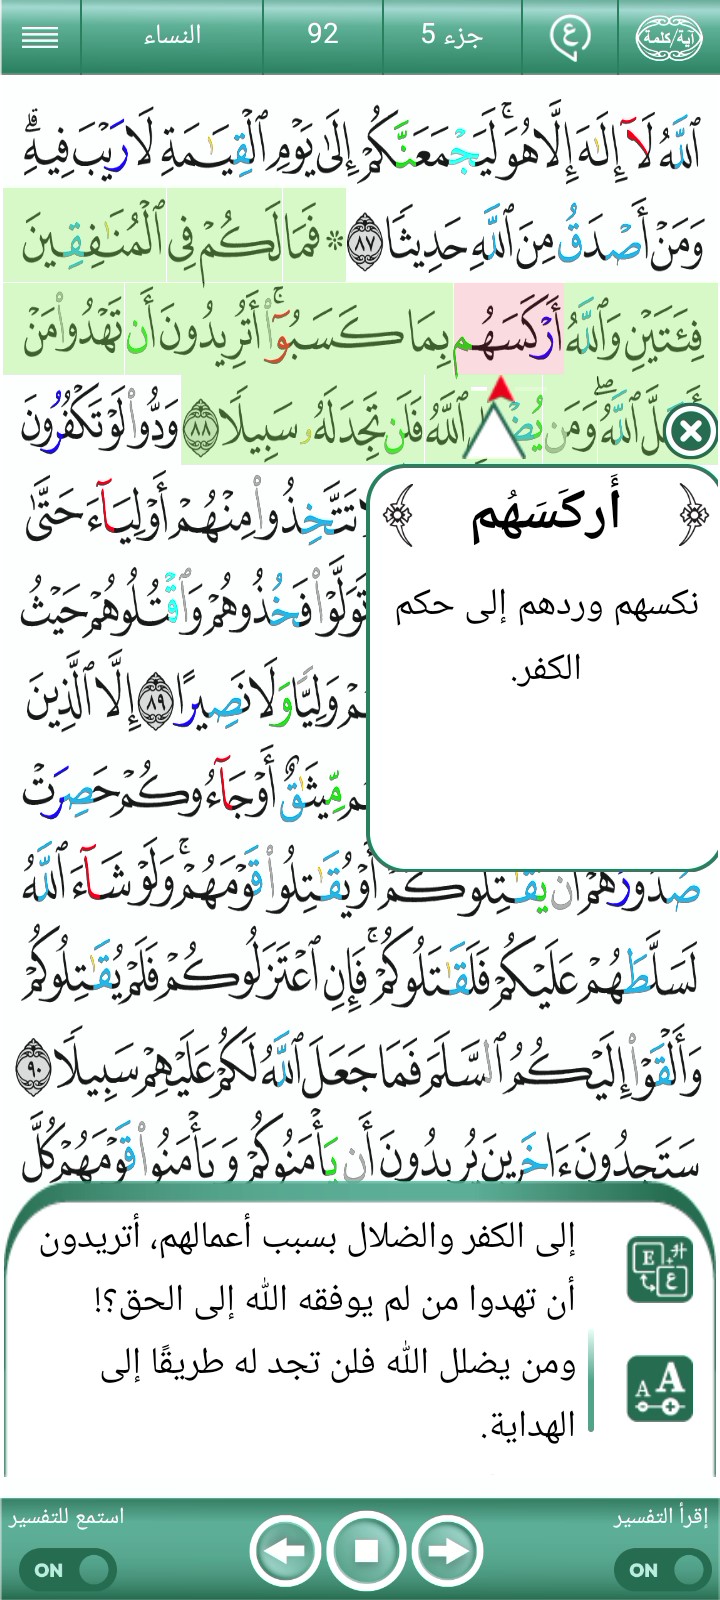 آية/كلمة
ع
جزء 5
92
النساء
ٱللَّهُ لَآ إِلَٰهَ إِلَّا هُوَۚ لَيَجۡمَعَنَّكُمۡ إِلَىٰ يَوۡمِ ٱلۡقِيَٰمَةِ لَا رَيۡبَ فِيهِۗ
وَمَنۡ أَصۡدَقُ مِنَ ٱللَّهِ حَدِيثٗا ٨٧ ۞ فَمَا لَكُمۡ فِي ٱلۡمُنَٰفِقِينَ
فِئَتَيۡنِ وَٱللَّهُ أَرۡكَسَهُم بِمَا كَسَبُوٓاْۚ أَتُرِيدُونَ أَن تَهۡدُواْ مَنۡ
ٱللَّهُۖ وَمَن ٱللَّهُ فَلَن تَجِدَ لَهُۥ سَبِيلٗا ٨٨ وَدُّواْ لَوۡ تَكۡفُرُونَ
تَتَّخِذُواْ مِنۡهُمۡ أَوۡلِيَآءَ حَتَّىٰ
تَوَلَّوۡاْ فَخُذُوهُمۡ وَٱقۡتُلُوهُمۡ حَيۡثُ
وَلِيّٗا وَلَا نَصِيرًا ٨٩ إِلَّا ٱلَّذِينَ
مِّيثَٰقٌ أَوۡ جَآءُوكُمۡ حَصِرَتۡ
صُدُورُهُمۡ أَن يُقَٰتِلُوكُمۡ أَوۡ يُقَٰتِلُواْ قَوۡمَهُمۡۚ وَلَوۡ شَآءَ ٱللَّهُ
لَسَلَّطَهُمۡ عَلَيۡكُمۡ فَلَقَٰتَلُوكُمۡۚ فَإِنِ ٱعۡتَزَلُوكُمۡ فَلَمۡ يُقَٰتِلُوكُمۡ
وَأَلۡقَوۡاْ إِلَيۡكُمُ ٱلسَّلَمَ فَمَا جَعَلَ ٱللَّهُ لَكُمۡ عَلَيۡهِمۡ سَبِيلٗا ٩٠
سَتَجِدُونَ ءَاخَرِينَ يُرِيدُونَ أَن يَأۡمَنُوكُمۡ وَيَأۡمَنُواْ قَوۡمَهُمۡ كُلَّ
﴿ أَركَسَهُم ﴾
نكسهم وردهم إلى حكم
الكفر.
إلى الكفر والضلال بسبب أعمالهم، أتريدون
أن تهدوا من لم يوفقه الله إلى الحق؟!
ومن يضلل الله فلن تجد له طريقًا إلى
الهداية.
إقرأ التفسير
استمع للتفسير
ON
ON